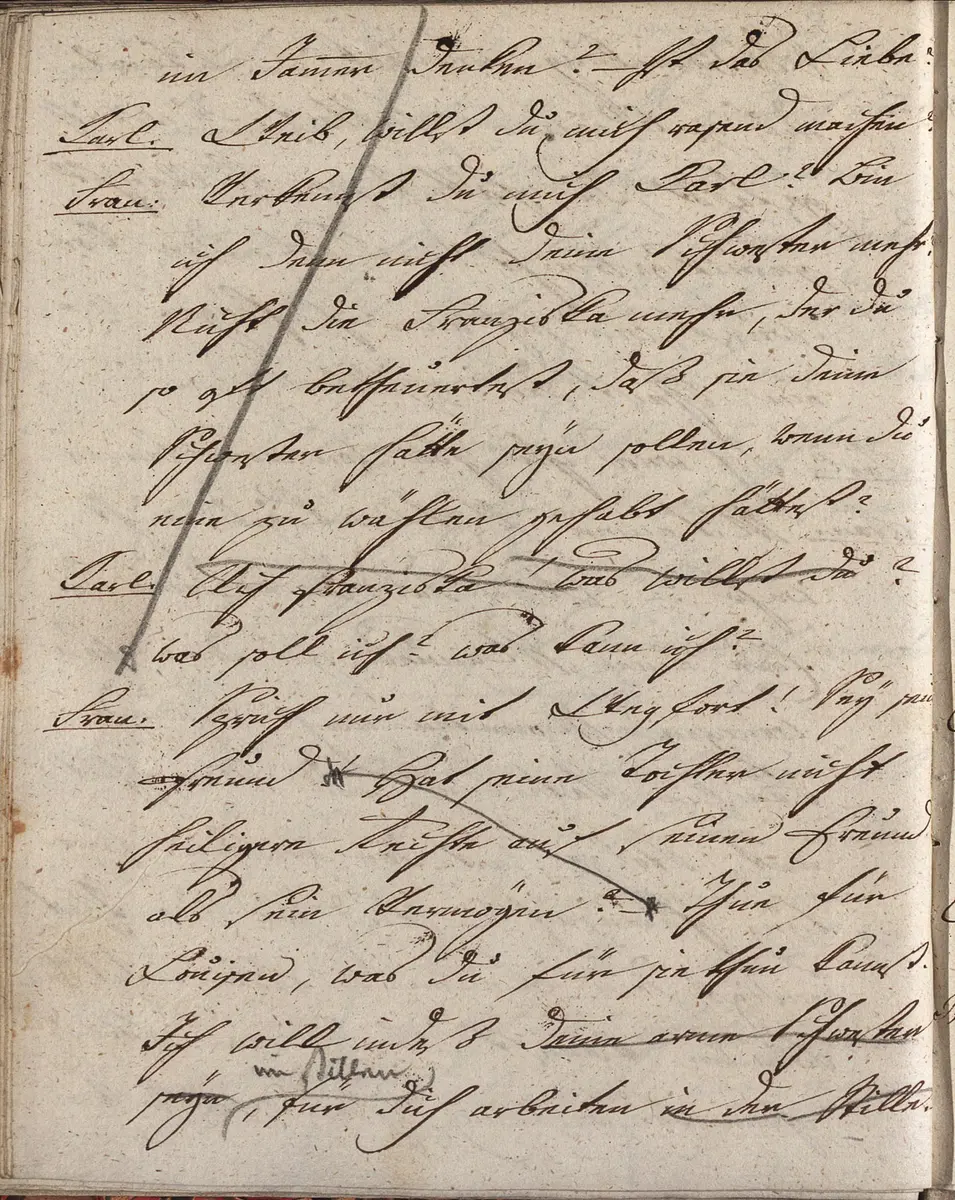 im Jammer denken? – Ist das Liebe?
Carl. Weib, willst du mich rasend machen?
Fran: Verkennst du mich Carl? Bin
ich denn nicht deine Schwester mehr?
Nicht die Franziska mehr, der du
so oft betheuertest, daß sie deine
Schwester hätte seyn sollen, wenn du
eine zu wählen gehabt hättest?
Carl. Ach Franziska! was willst du?
was soll ich? was kann ich?
Fran. Sprich nur mit Wegfort! Sey sein
Freund Hat seine Tochter nicht
heiligere Rechte auf seinen Freund
als sein Vermögen? – Thue für
Louisen, was du für sie thun kannst.
Ich will indeß deine arme Schwester
im Stillen
seyn, für dich arbeiten in der Stille.